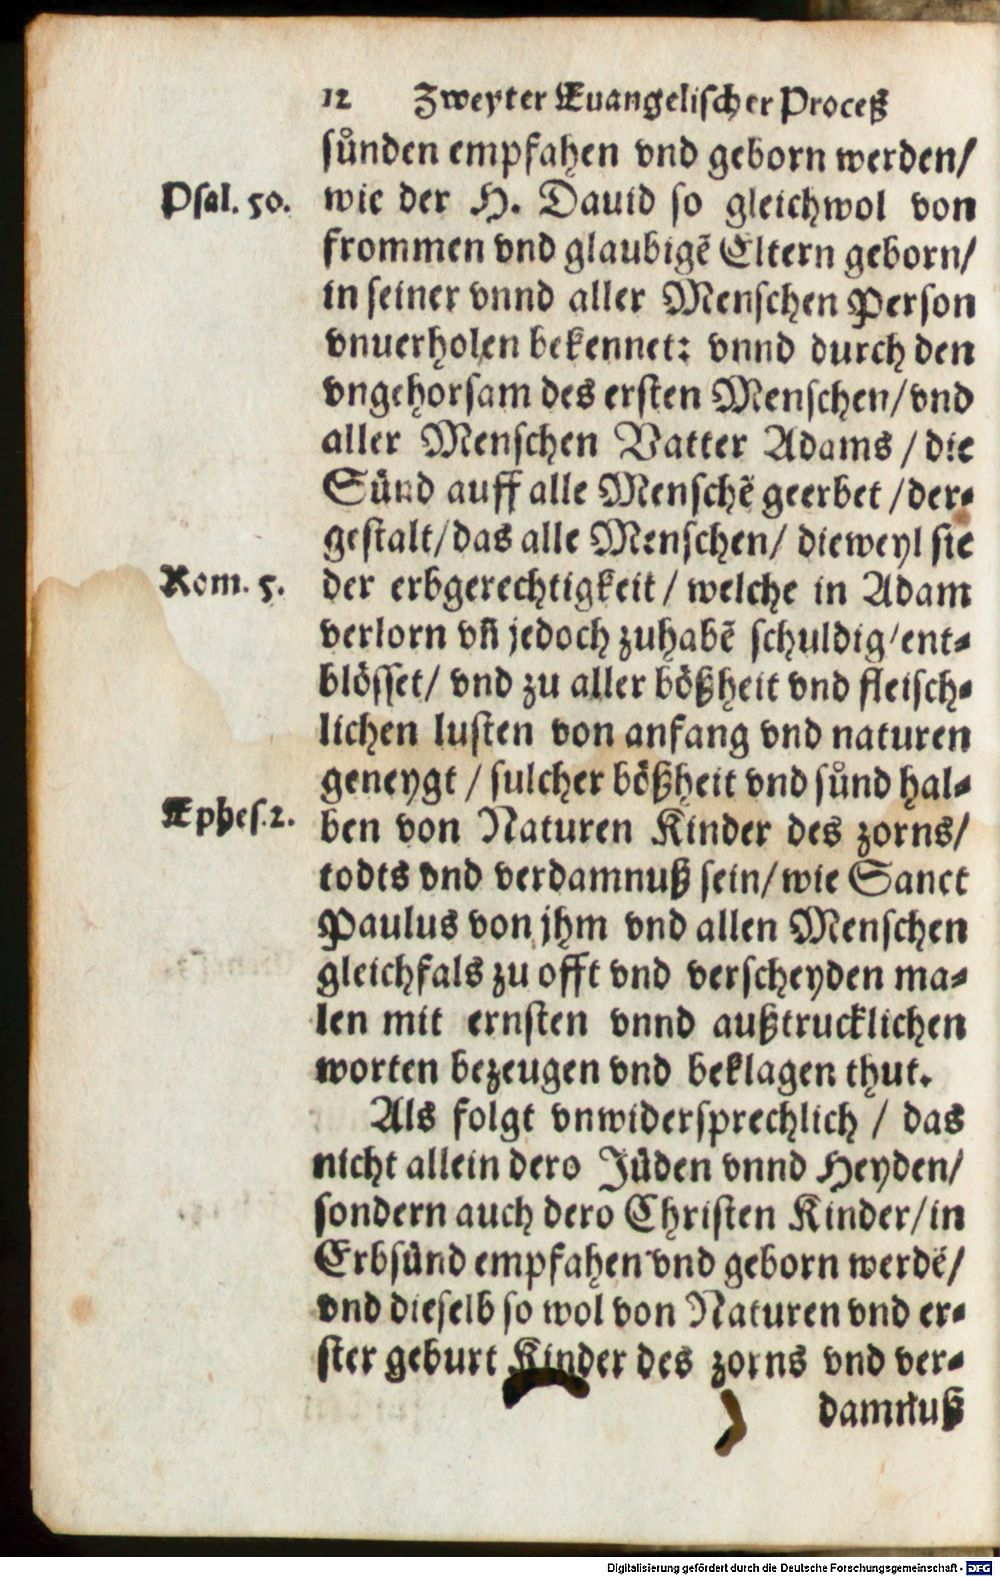 12 Zweyter Euangelischer Proceß
sůnden empfahen vnd geborn werden/
Psal. 50. wie der H. Dauid so gleichwol von
frommen vnd glaubigẽ Eltern geborn/
in seiner vnnd aller Menschen Person
vnuerholen bekennet: vnnd durch den
vngehorsam des ersten Menschen/vnd
aller Menschen Vatter Adams / die
Sünd auff alle Menschẽ geerbet /der-
gestalt/das alle Menschen/ dieweyl sie
Rom. 5. der erbgerechtigkeit / welche in Adam
verlorn vñ jedoch zuhabẽ schuldig/ent-
blösset/ vnd zu aller bößheit vnd fleisch-
lichen lusten von anfang vnd naturen
geneygt / sulcher bößheit vnd sůnd hal-
Ephes.2. ben von Naturen Kinder des zorns/
todts vnd verdamnuß sein/wie Sanct
Paulus von jhm vnd allen Menschen
gleichfals zu offt vnd verscheyden ma-
len mit ernsten vnnd außtrucklichen
worten bezeugen vnd beklagen thut.
Als folgt vnwidersprechlich / das
nicht allein dero Jüden vnnd Heyden/
sondern auch dero Christen Kinder/in
Erbsünd empfahen vnd geborn werdẽ/
vnd dieselb so wol von Naturen vnd er-
ster geburt Kinder des zorns vnd ver-
damnuß
Digitalisierung gefördert durch die Deutsche Forschungsgemeinschaft - DFG